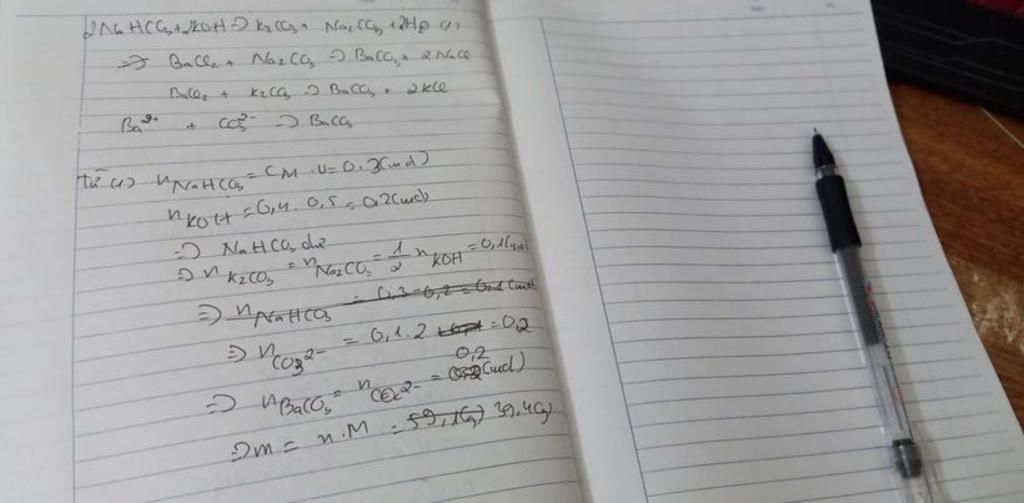 2NaHCO3 + 2KOH => K2CO3 + Na2CO3 + 2H2O (1)
=> BaCl2 + Na2CO3 => BaCO3 + 2NaCl
BaCl2 + K2CO3 => BaCO3 + 2KCl
Ba2+ + CO3^2- => BaCO3
Từ (1) nNaHCO3 = CM . V = 0,3 (mol)
nKOH = 0,4 . 0,5 = 0,2 (mol)
=> NaHCO3 dư
=> nK2CO3 = nNa2CO3 = 1/2 nKOH = 0,1 (mol)
=> nNaHCO3 = 0,3 - 0,2 = 0,1 (mol)
=> nCO3^2- = 0,1 . 2 = 0,2
0,2
=> nBaCO3 = nCO3^2- = (mol)
=> m = n . M = 59,1 (g) 39,4 (g)